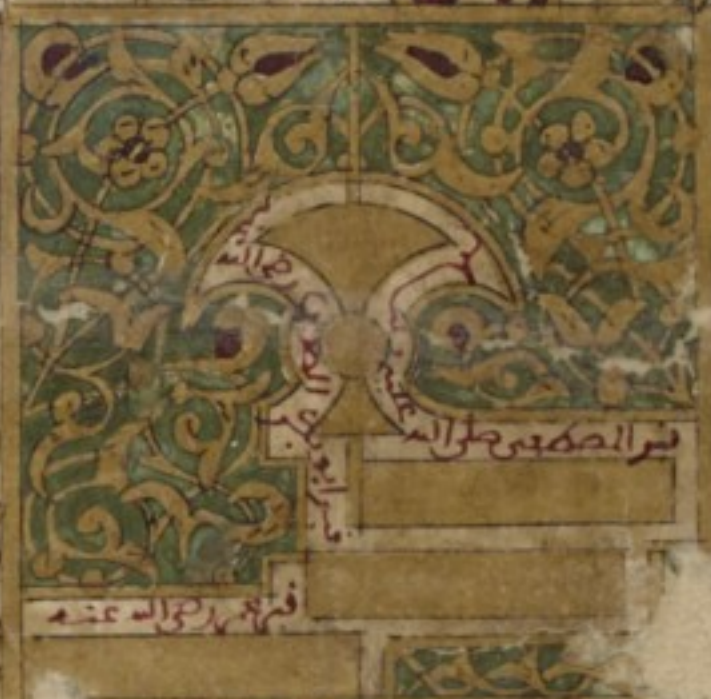 قبر المصطفى صلى الله عليه وسلم
قبر ابو بكر الصديق رضى الله عنه
قبر عمر رضى الله عنه